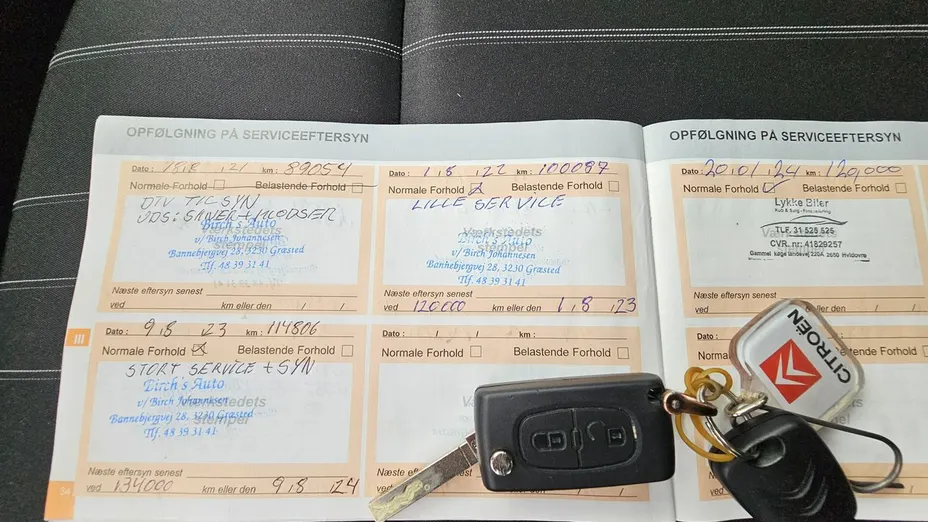 OPFØLGNING PÅ SERVICEEFTERSYN
Dato : 18.8 .21 km : 89054
Normale Forhold Belastende Forhold
DIV TILSYN
Birch's Auto
v/ Birch Johannesen
Bannebjergvej 28, 3230 Græsted
Tlf. 48 39 31 41
Næste eftersyn senest
ved km eller den / /
Dato : 1.8 .22 km : 100087
Normale Forhold Belastende Forhold
LILLE SERVICE
Værkstedets
stempel
Birch's Auto
v/ Birch Johannesen
Bannebjergvej 28, 3230 Græsted
Tlf. 48 39 31 41
Næste eftersyn senest
ved 120000 km eller den 1.8 /23
Dato : 9.8 .23 km : 114806
Normale Forhold Belastende Forhold
STORT SERVICE + SYN
Birch's Auto
v/ Birch Johannesen
Bannebjergvej 28, 3230 Græsted
Tlf. 48 39 31 41
Værkstedets
stempel
Næste eftersyn senest
ved 134000 km eller den 9.8 /24
Dato : / / km :
Normale Forhold Belastende Forhold
Næste eftersyn senest
III
54
OPFØLGNING PÅ SERVICEEFTERSYN
Dato : 20.01.24 km : 129,000
Normale Forhold Belastende Forhold
Lykke Biler
TLF. 31 525 525
CVR. nr: 41829257
Næste eftersyn senest
ved km eller den
Dato
Normale
Næste
ved
CITROËN